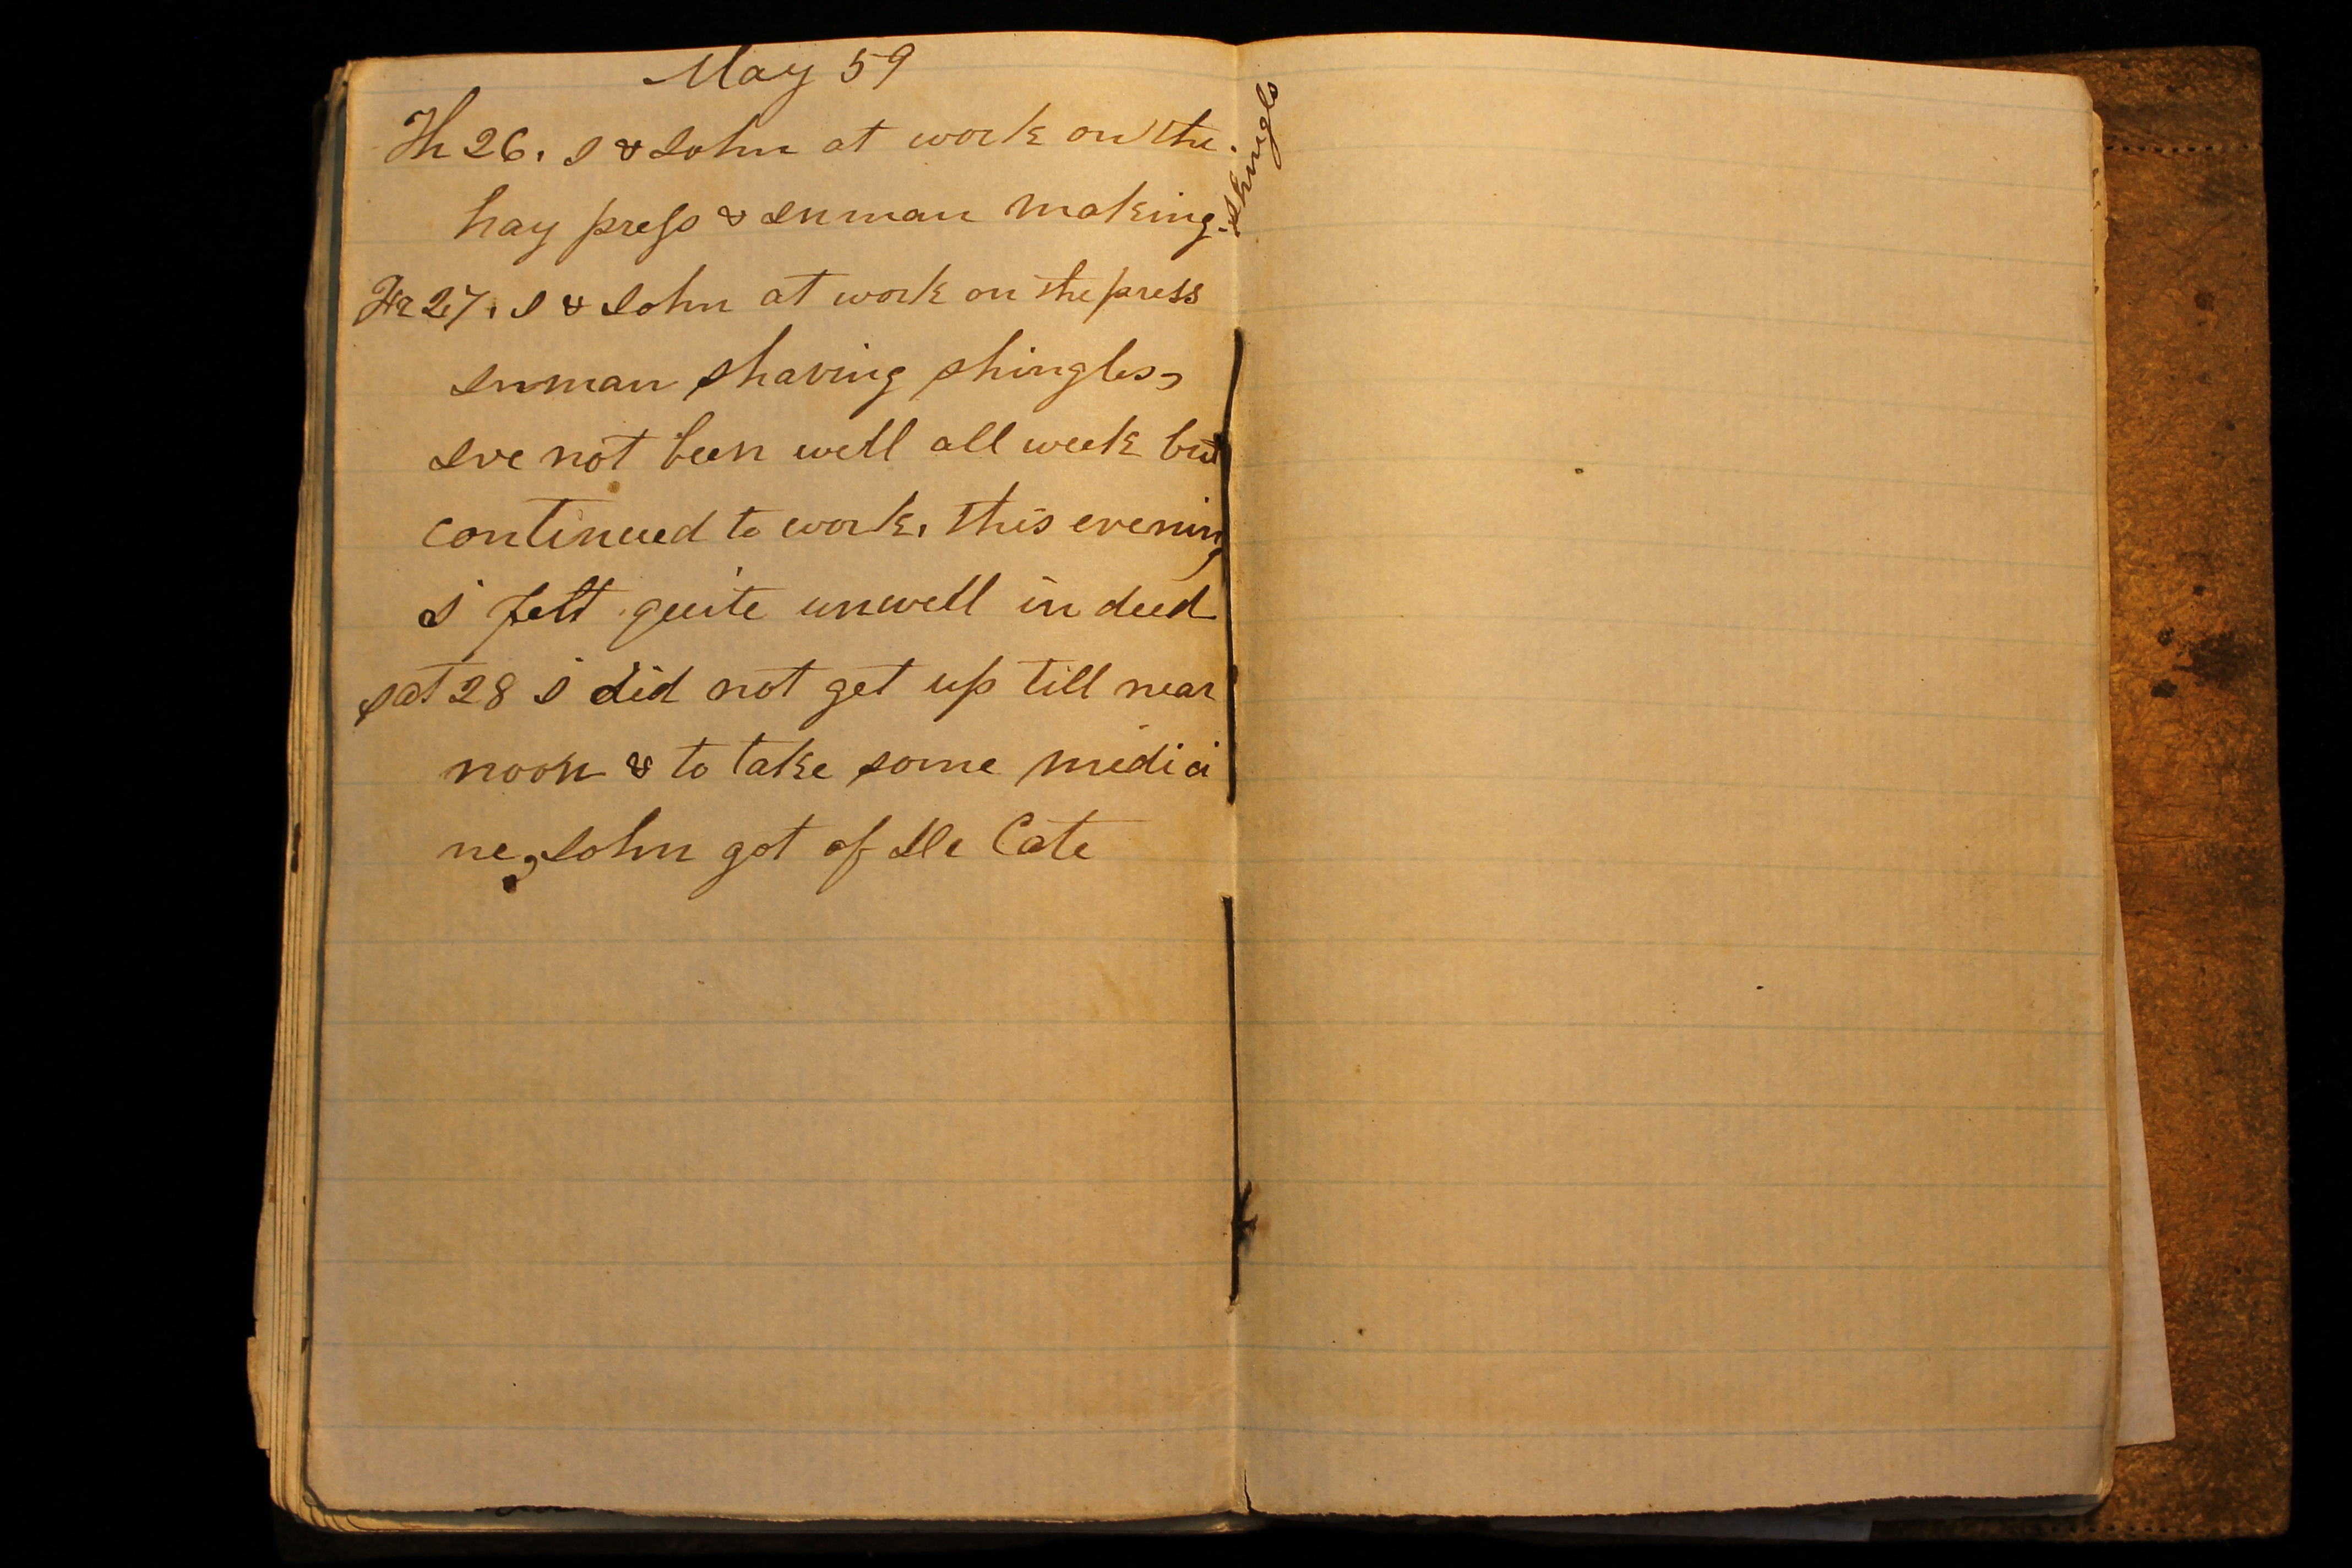 May 59
Th 26. I & John at work on the
hay press & Inman making shingls
Fr 27. I & John at work on the press
Inman shaving shingles,
Ive not been well all week but
continued to work. this evening
I felt quite unwell in deed
Sat 28 I did not get up till near
noon & to take some medici
ne, John got of De Cate